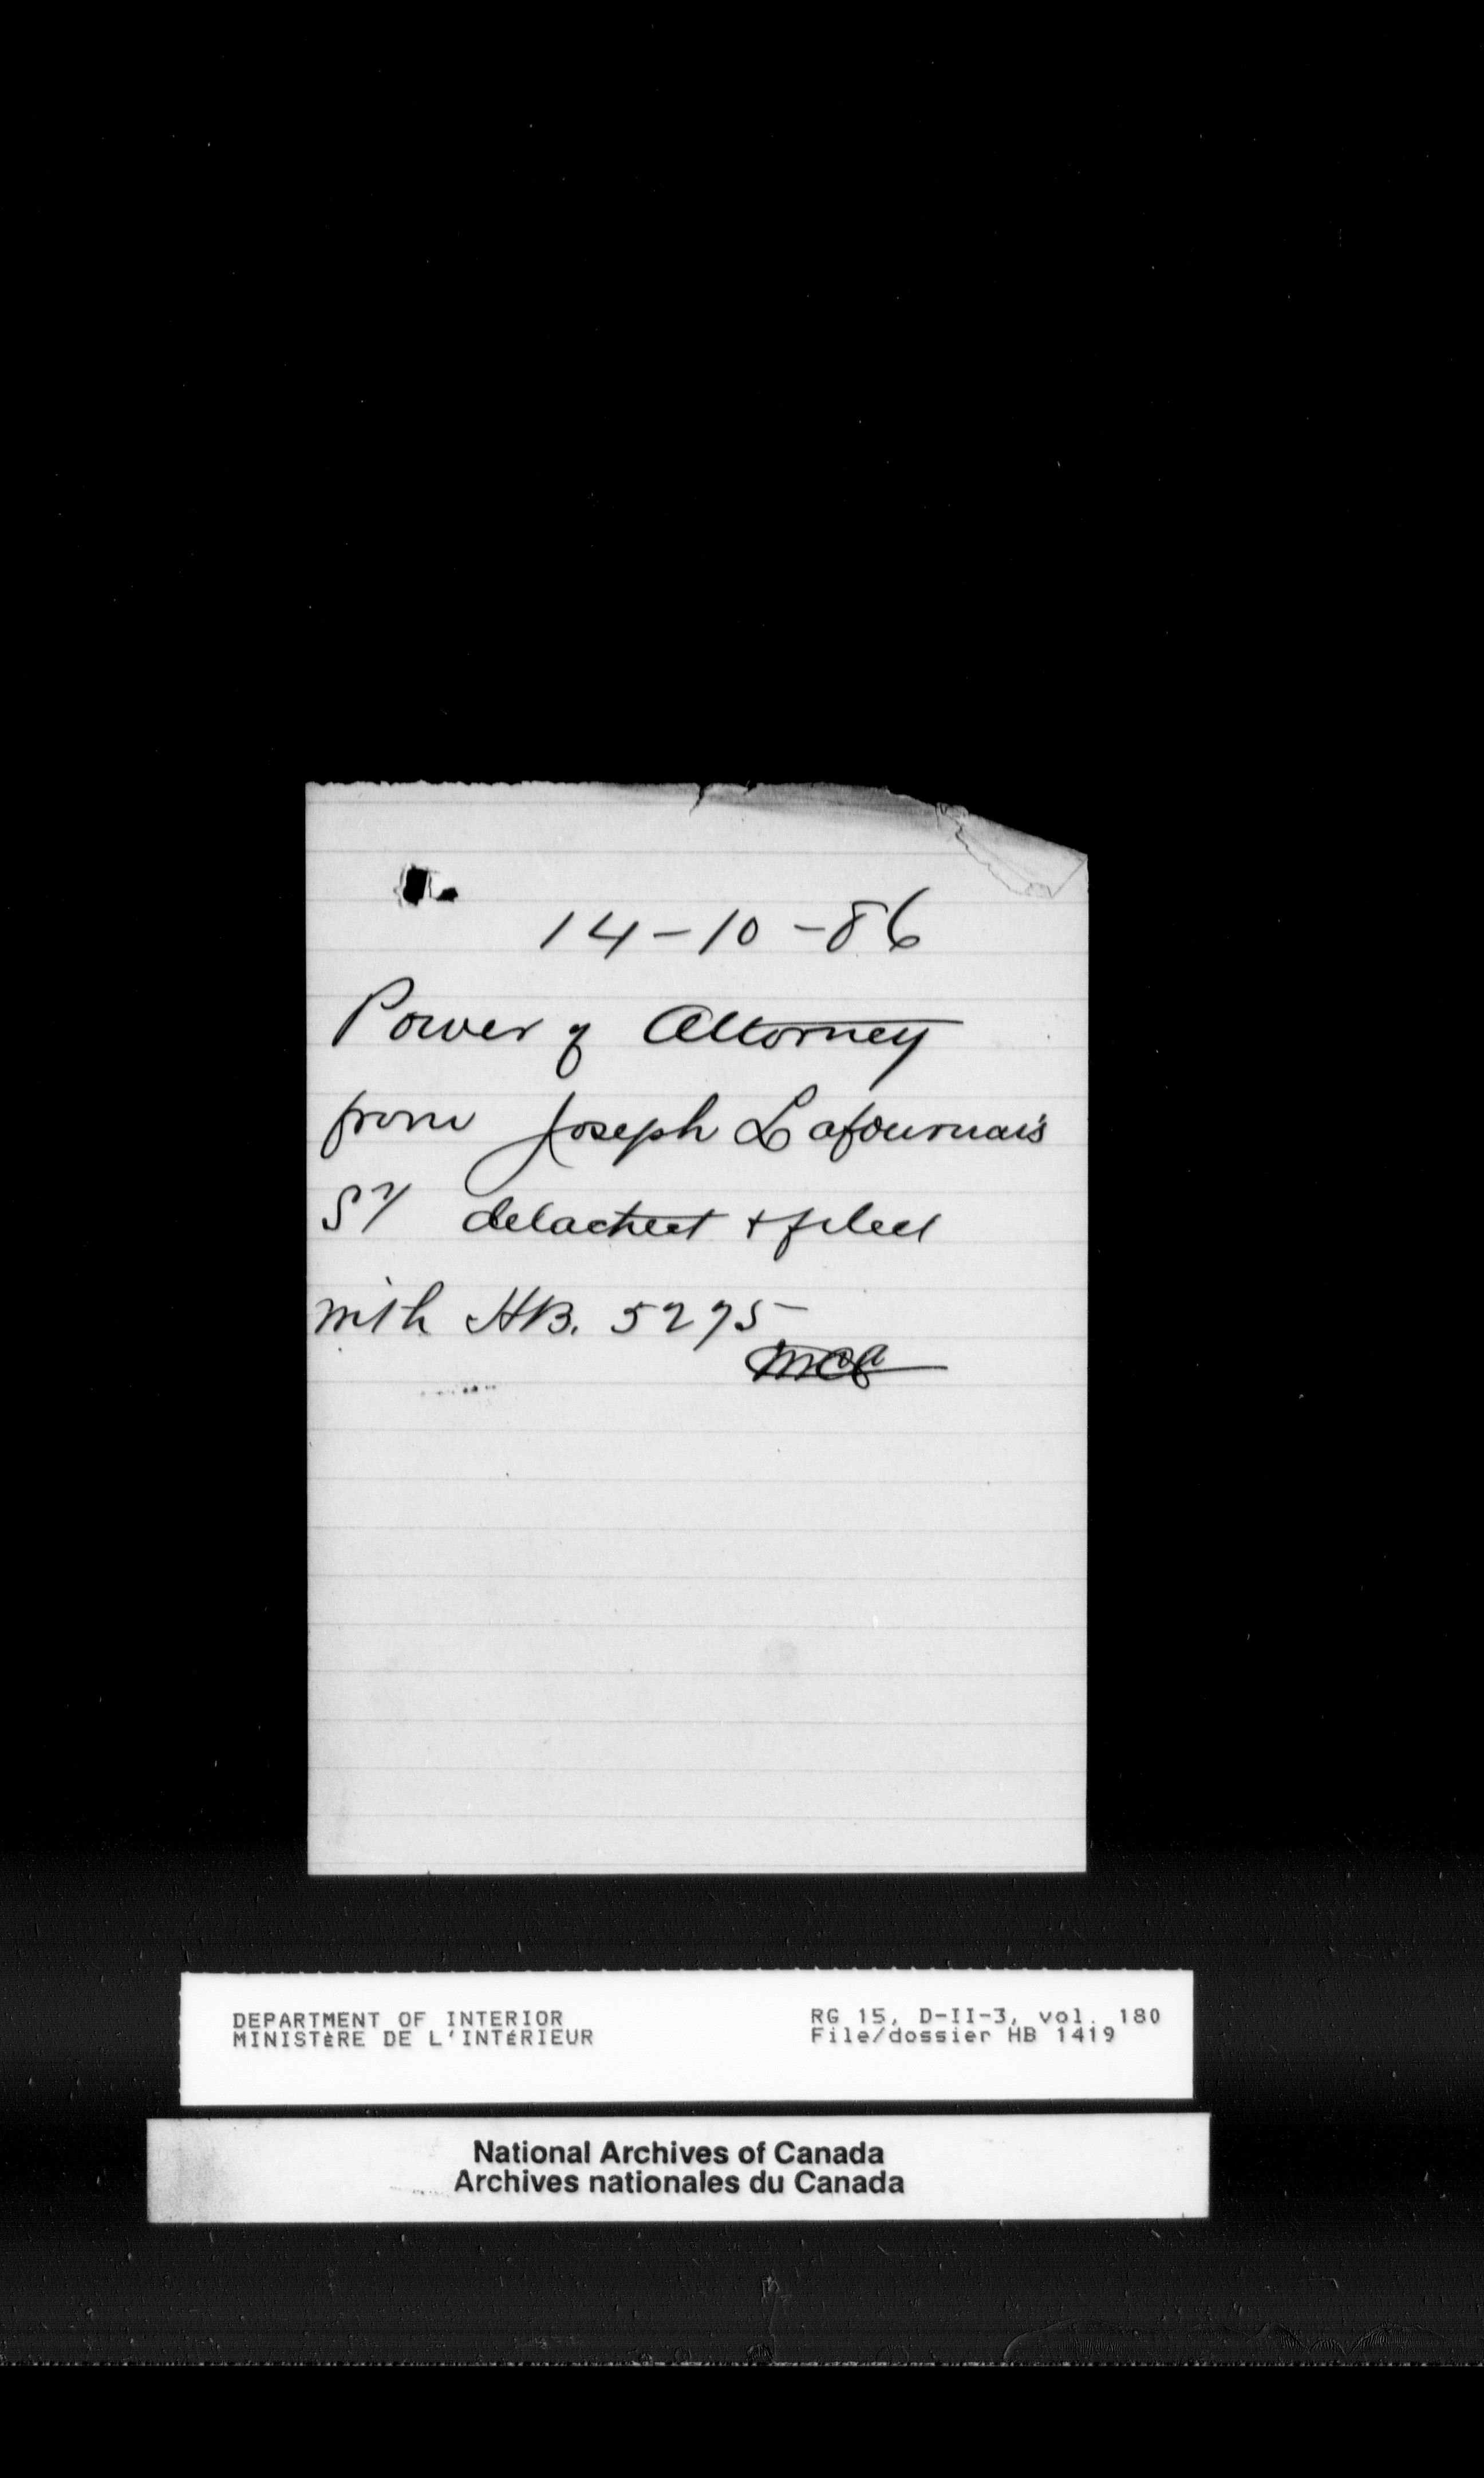 14-10-86
Power of Attorney
from Joseph Lafournais
Sr detached & filed
with HB. 5275
DEPARTMENT OF INTERIOR
MINISTÈRE DE L'INTÉRIEUR
RG 15, D-II-3, vol. 180
File/dossier HB 1419
National Archives of Canada
Archives nationales du Canada